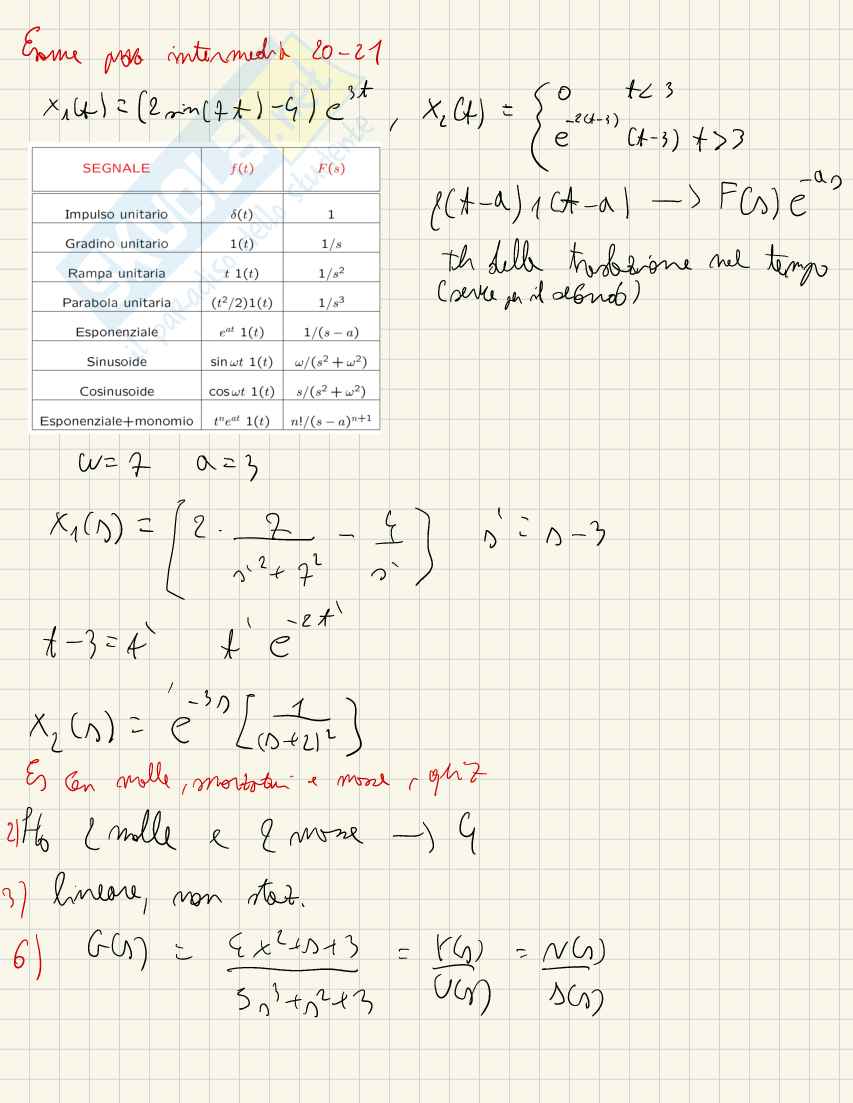 Esame prova intermedia 20-21
x₁(t) = (2 sin(7t) - 4) e^{3t} , x₂(t) = { 0 t < 3
e^{-2(t-3)} (t-3) t > 3
SEGNALE f(t) F(s)
Impulso unitario δ(t) 1
Gradino unitario 1(t) 1/s
Rampa unitaria t 1(t) 1/s²
Parabola unitaria (t²/2)1(t) 1/s³
Esponenziale e^{at} 1(t) 1/(s − a)
Sinusoide sin ωt 1(t) ω/(s² + ω²)
Cosinusoide cos ωt 1(t) s/(s² + ω²)
Esponenziale+monomio tⁿe^{at} 1(t) n!/(s − a)^{n+1}
f(t-a) 1(t-a) → F(s) e^{-as}
th della traslazione nel tempo
(serve per il secondo)
ω = 7 a = 3
X₁(s) = [2 · 7/(s'² + 7²) - 4/s'] s' = s - 3
t - 3 = t' t' e^{-2t'}
X₂(s) = e^{-3s} [1/(s+2)²]
Es con molle, smorzatori e masse, quiz
2) Ho 2 molle e 2 masse → 4
3) lineare, non staz.
6) G(s) = (4x² + s + 3)/(5s³ + s² + 3) = Y(s)/U(s) = N(s)/D(s)
skuola.net
il paradiso dello studente